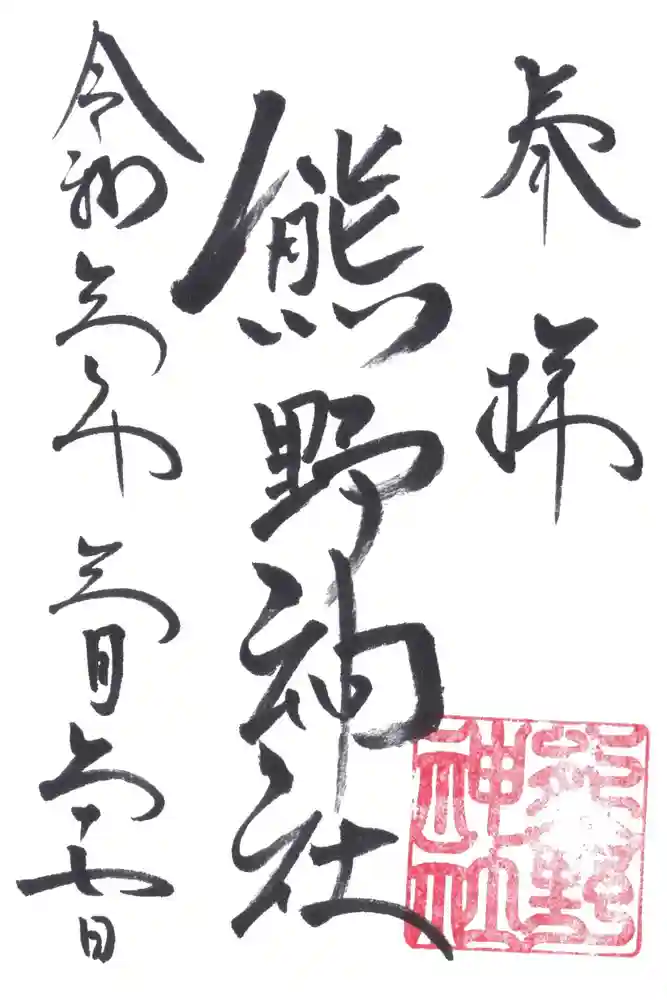 奉拝
熊野神社
令和三年三月二十七日
熊野
神社